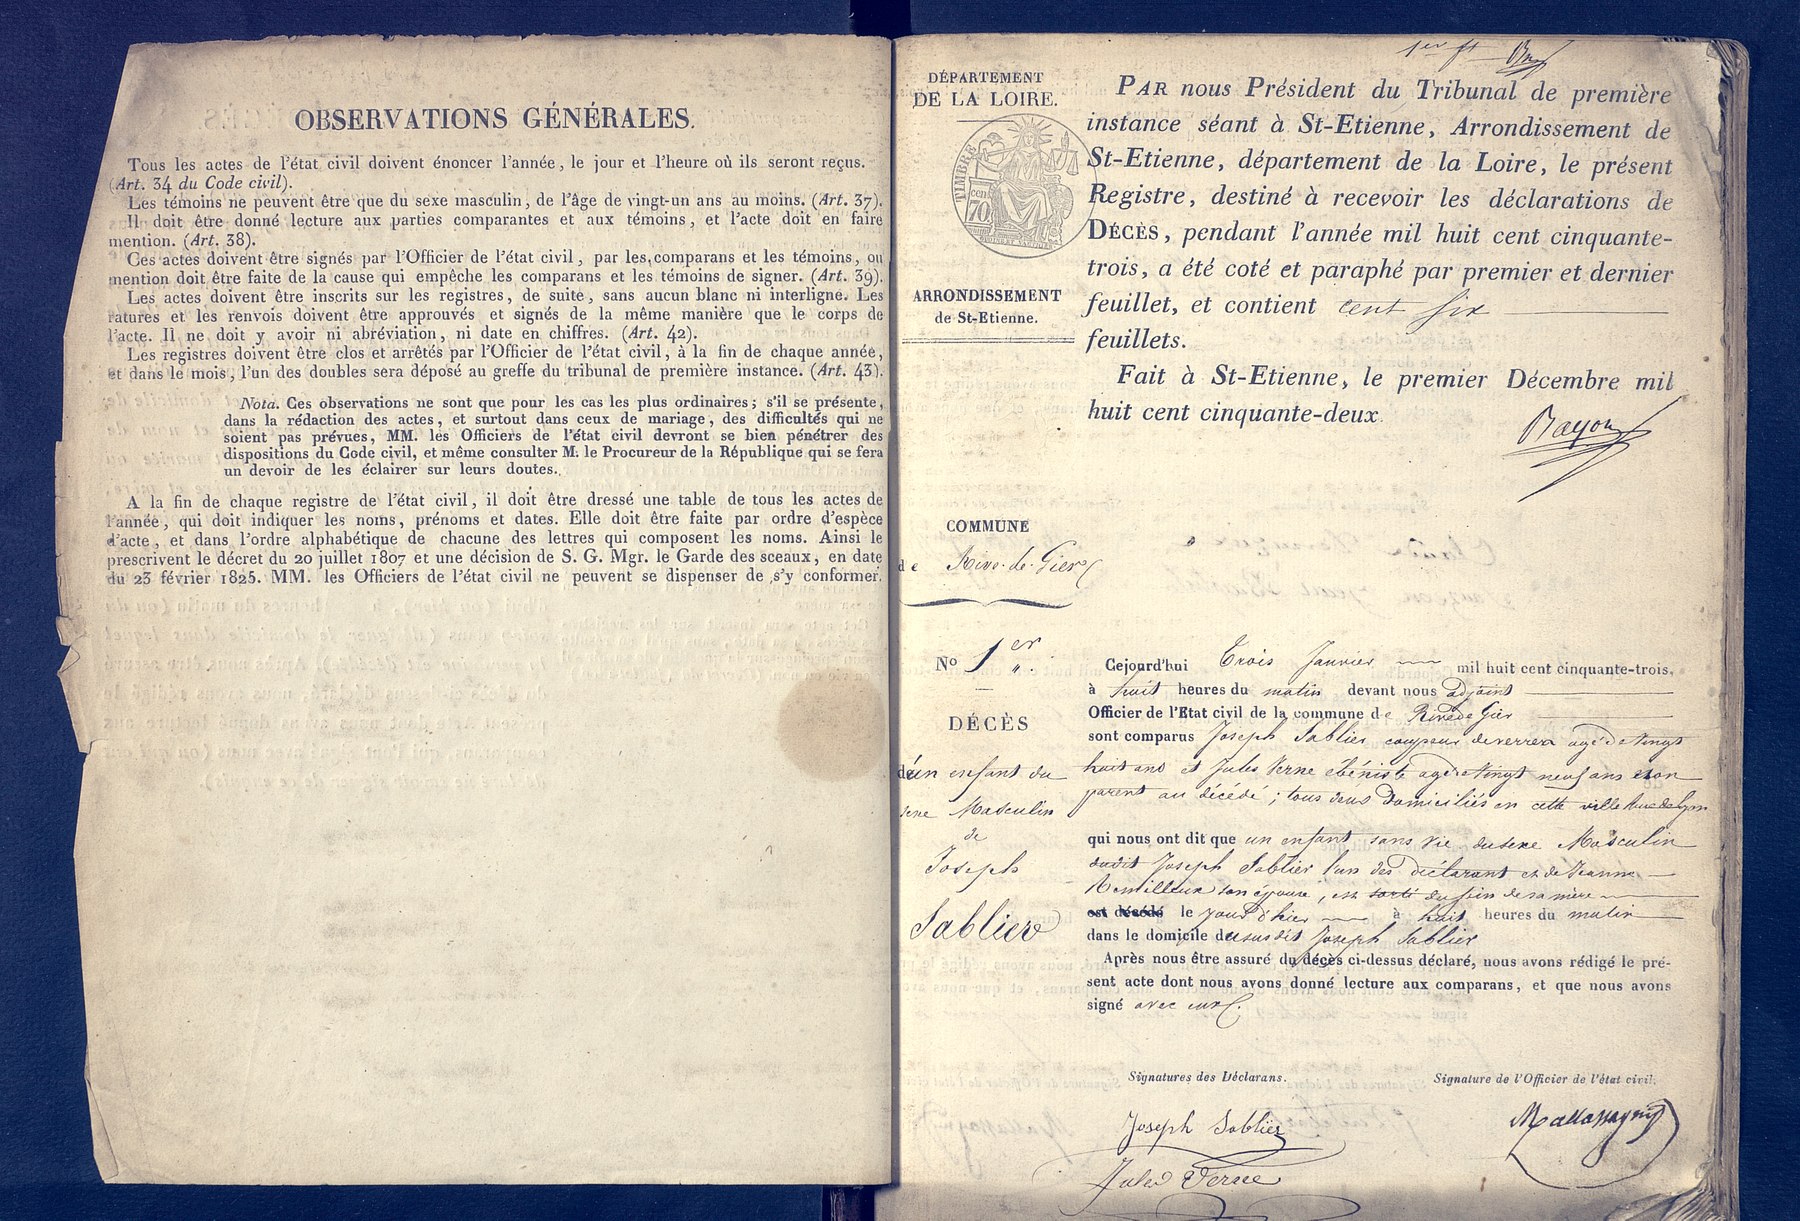 OBSERVATIONS GÉNÉRALES.
Tous les actes de l'état civil doivent énoncer l'année, le jour et l'heure où ils seront reçus.
(Art. 34 du Code civil).
Les témoins ne peuvent être que du sexe masculin, de l'âge de vingt-un ans au moins. (Art. 37).
Il doit être donné lecture aux parties comparantes et aux témoins, et l'acte doit en faire
mention. (Art. 38).
Ces actes doivent être signés par l'Officier de l'état civil, par les comparans et les témoins, ou
mention doit être faite de la cause qui empêche les comparans et les témoins de signer. (Art. 39).
Les actes doivent être inscrits sur les registres, de suite, sans aucun blanc ni interligne. Les
ratures et les renvois doivent être approuvés et signés de la même manière que le corps de
l'acte. Il ne doit y avoir ni abréviation, ni date en chiffres. (Art. 42).
Les registres doivent être clos et arrêtés par l'Officier de l'état civil, à la fin de chaque année,
et dans le mois, l'un des doubles sera déposé au greffe du tribunal de première instance. (Art. 43).
Nota. Ces observations ne sont que pour les cas les plus ordinaires; s'il se présente,
dans la rédaction des actes, et surtout dans ceux de mariage, des difficultés qui ne
soient pas prévues, MM. les Officiers de l'état civil devront se bien pénétrer des
dispositions du Code civil, et même consulter M. le Procureur de la République qui se fera
un devoir de les éclairer sur leurs doutes.
A la fin de chaque registre de l'état civil, il doit être dressé une table de tous les actes de
l'année, qui doit indiquer les noms, prénoms et dates. Elle doit être faite par ordre d'espèce
d'acte, et dans l'ordre alphabétique de chacune des lettres qui composent les noms. Ainsi le
prescrivent le décret du 20 juillet 1807 et une décision de S. G. Mgr. le Garde des sceaux, en date
du 23 février 1825. MM. les Officiers de l'état civil ne peuvent se dispenser de s'y conformer.
1er ft
DÉPARTEMENT
DE LA LOIRE.
TIMBRE
cen
70
ARRONDISSEMENT
de St-Etienne.
PAR nous Président du Tribunal de première
instance séant à St-Etienne, Arrondissement de
St-Etienne, département de la Loire, le présent
Registre, destiné à recevoir les déclarations de
DÉCÈS, pendant l'année mil huit cent cinquante-
trois, a été coté et paraphé par premier et dernier
feuillet, et contient cent six
feuillets.
Fait à St-Etienne, le premier Décembre mil
huit cent cinquante-deux.
COMMUNE
de Rive-de-Gier
No 1er
DÉCÈS
d'un enfant du
sexe Masculin
de
Joseph
Sablier
Cejourd'hui Trois Janvier mil huit cent cinquante-trois.
à huit heures du matin devant nous adjoint
Officier de l'Etat civil de la commune de Rive de Gier
sont comparus Joseph Sablier coupeur de verres agé de Vingt
huit ans et Jules Verne ébéniste agé de Vingt neuf ans non
parent au décédé; tous deux Domiciliés en cette ville Rue de Lyon
qui nous ont dit que un enfant sans vie du sexe Masculin
dudit Joseph Sablier l'un des déclarant et de Jeanne
Remilleux son épouse, est sorti du sein de sa mère
est décédé le jour d'hier à huit heures du matin
dans le domicile du susdit Joseph Sablier
Après nous être assuré du décès ci-dessus déclaré, nous avons rédigé le pré-
sent acte dont nous avons donné lecture aux comparans, et que nous avons
signé avec eux.
Signatures des Déclarans.
Signature de l'Officier de l'état civil.
Joseph Sablier
Jules Verne